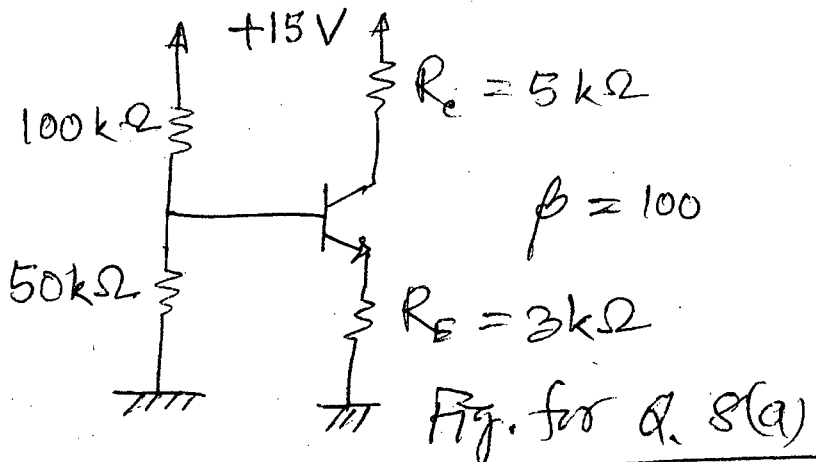 +15 V
100kΩ
R_c = 5 kΩ
β = 100
50kΩ
R_E = 3kΩ
Fig. for Q. 8(a)